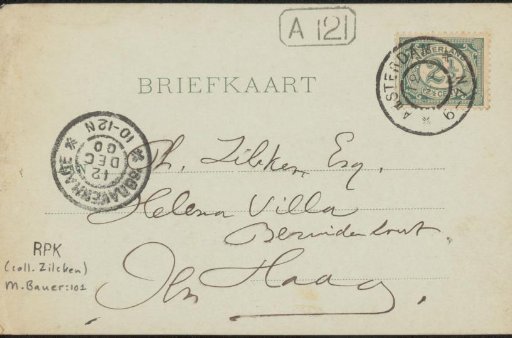 A 121
BRIEFKAART
AMSTERDAM
NEDERLAND
2½
'SGRAVENHAGE
10-12N
12
DEC
00
Ph. Zilcken, Esq.
Helena Villa
Bezuidenhout
Den Haag.
RPK
(coll. Zilcken)
M. Bauer: 101